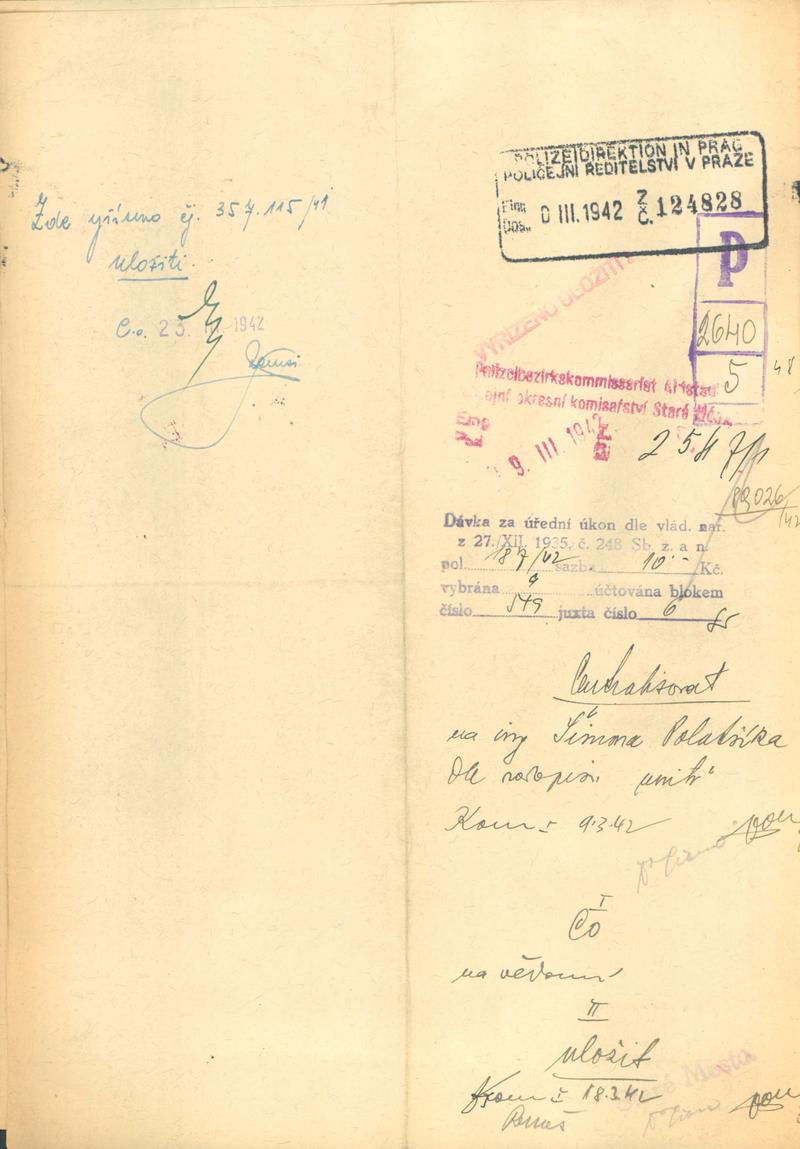 Zde přísno čj. 357.115/41
uložiti.
Č.o. 23. 1942
POLIZEIDIREKTION IN PRAG
POLICEJNÍ ŘEDITELSTVÍ V PRAZE
Eing.
Doš. 0 III. 1942 Z Č. 124828
P
2640
5
48
VYŘÍZENO ULOŽITI
Polizeibezirkskommissariat Altstadt
jní okresní komisařství Staré Měs
Eing
9. III. 1942
83026/42
Dávka za úřední úkon dle vlád. nař.
z 27./XII. 1935, č. 248 Sb. z. a n.
pol. 187/42 sazba 10.- Kč.
vybrána a účtována blokem
číslo 549 juxta číslo 6
na ing Šimona Polatšíka
dle rozpisu
Kom 9.3.42
I
Čo
na vědomí
II
uložit
Staré Města
Kom 18.3.42